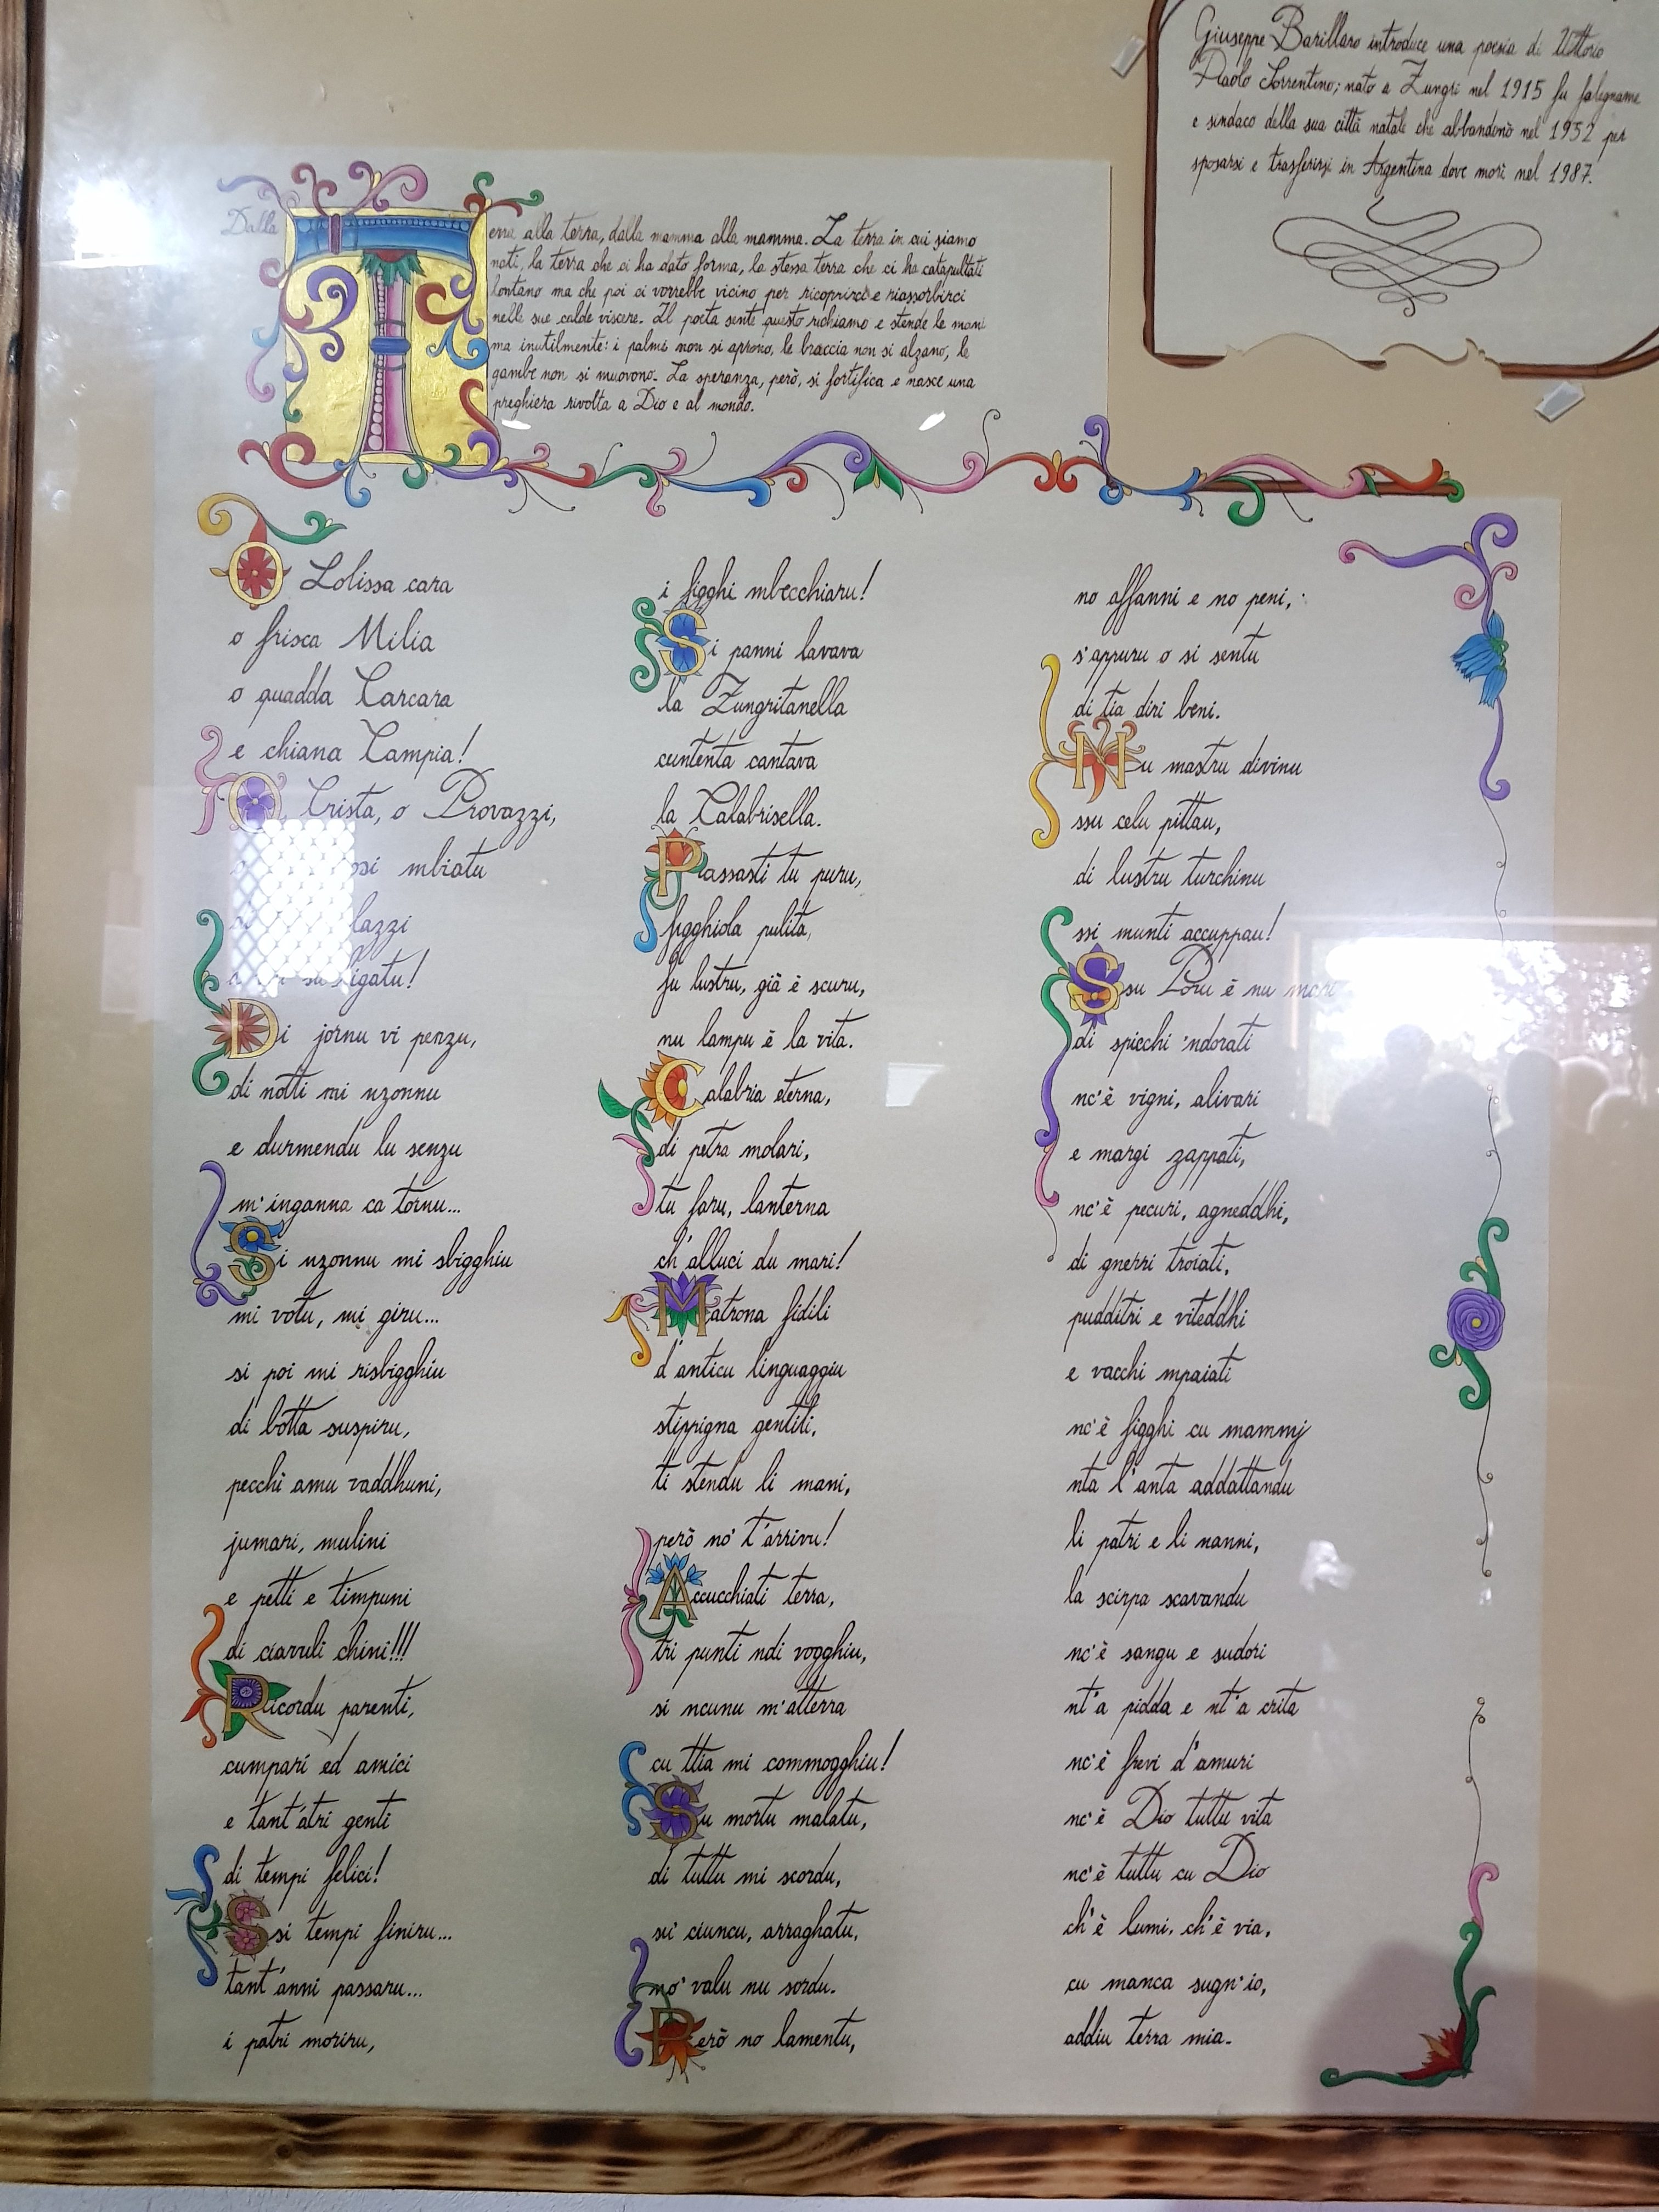 Giuseppe Barillaro introduce una poesia di Vittorio
Paolo Sorrentino; nato a Zungri nel 1915 fu falegname
e sindaco della sua città natale che abbandonò nel 1952 per
sposarsi e trasferirsi in Argentina dove morì nel 1987.
Dalla Terra alla terra, dalla mamma alla mamma. La terra in cui siamo
nati, la terra che ci ha dato forma, la stessa terra che ci ha catapultati
lontano ma che poi ci vorrebbe vicino per ricoprirci e riassorbirci
nelle sue calde viscere. Il poeta sente questo richiamo e stende le mani
ma inutilmente: i palmi non si aprono, le braccia non si alzano, le
gambe non si muovono. La speranza, però, si fortifica e nasce una
preghiera rivolta a Dio e al mondo.
O Lolissa cara
o frisca Milia
o quadda Carcara
e chiana Campia!
O Crista, o Provazzi,
mbiatu
lazzi
ligatu!
Di jornu vi penzu,
di notti mi nzonnu
e durmendu lu senzu
m'inganna ca tornu...
Si nzonnu mi sbigghiu
mi votu, mi giru...
si poi mi risbigghiu
di botta suspiru,
pecchì amu vaddhuni,
jumari, mulini
e petti e timpuni
di ciavuli chini!!!
Ricordu parenti,
cumpari ed amici
e tant'atri genti
di tempi felici!
Ssi tempi finiru...
tant'anni passaru...
i patri moriru,
i figghi mbecchiaru!
Si panni lavava
la Zungritanella
cuntenta cantava
la Calabrisella.
Passasti tu puru,
figghiola pulita,
fu lustru, già è scuru,
nu lampu è la vita.
Calabria eterna,
di petra molari,
tu faru, lanterna
ch'alluci du mari!
Matrona fidili
d'anticu linguaggiu
stippigna gentili,
ti stendu li mani,
però no' t'arrivu!
Accucchiati terra,
tri punti ndi vogghiu,
si ncunu m'atterra
cu ttia mi commogghiu!
Su mortu malatu,
di tuttu mi scordu,
su' ciuncu, arraghatu,
no' valu nu sordu.
Però no lamentu,
no affanni e no peni,
s'appuru o si sentu
di tia diri beni.
Nu mastru divinu
ssu celu pittau,
di lustru turchinu
ssi munti accuppau!
Ssu Poru è nu mari
di spicchi 'ndorati
nc'è vigni, alivari
e margi zappati,
nc'è pecuri, agneddhi,
di gnerri troiati,
pudditri e viteddhi
e vacchi mpaiati
nc'è figghi cu mammi
nta l'anta addattandu
li patri e li nanni,
la scirpa scavandu
nc'è sangu e sudori
nt'a pidda e nt'a crita
nc'è frevi d'amuri
nc'è Dio tuttu vita
nc'è tuttu cu Dio
ch'è lumi, ch'è via,
cu manca sugn'io,
addiu terra mia.